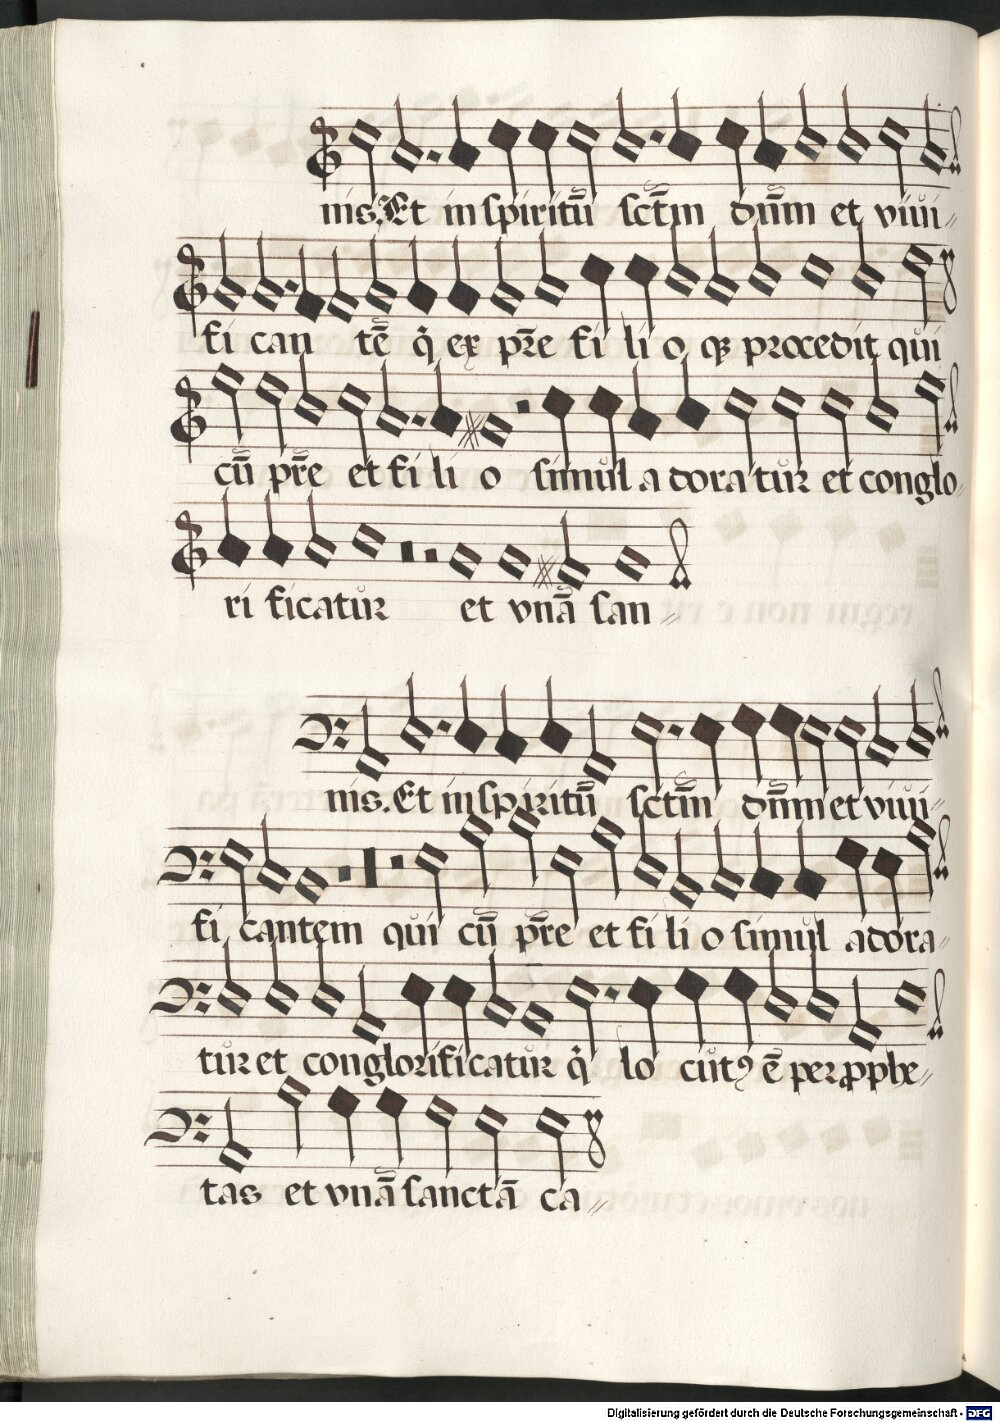 nis. Et in spiritū sctm̄ dn̄m et viui
fi can tē q̇ ex pr̄e fi li o qꝫ procedit qui
cū pr̄e et fi li o simul a dora tur et conglo
ri ficatur et vnā san
nis. Et in spiritū sctm̄ dn̄m et viui
fi cantem qui cū pr̄e et fi li o simul adora
tur et conglorificatur q̇ lo cutꝰ ē per ꝓphe
tas et vnā sanctā ca
Digitalisierung gefördert durch die Deutsche Forschungsgemeinschaft - DFG